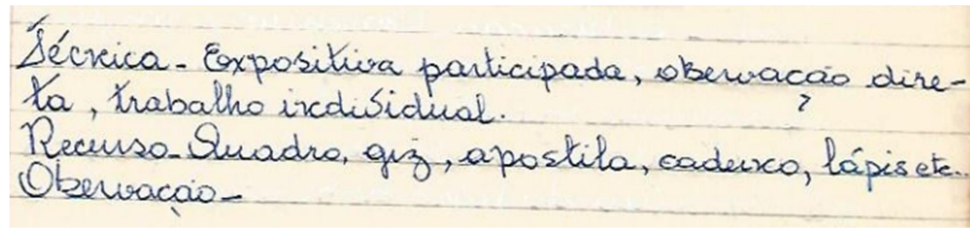 Técnica - Expositiva participada, obervação dire-
ta, trabalho individual.
Recurso - Quadro, giz, apostila, caderno, lápis etc.
Obervação -